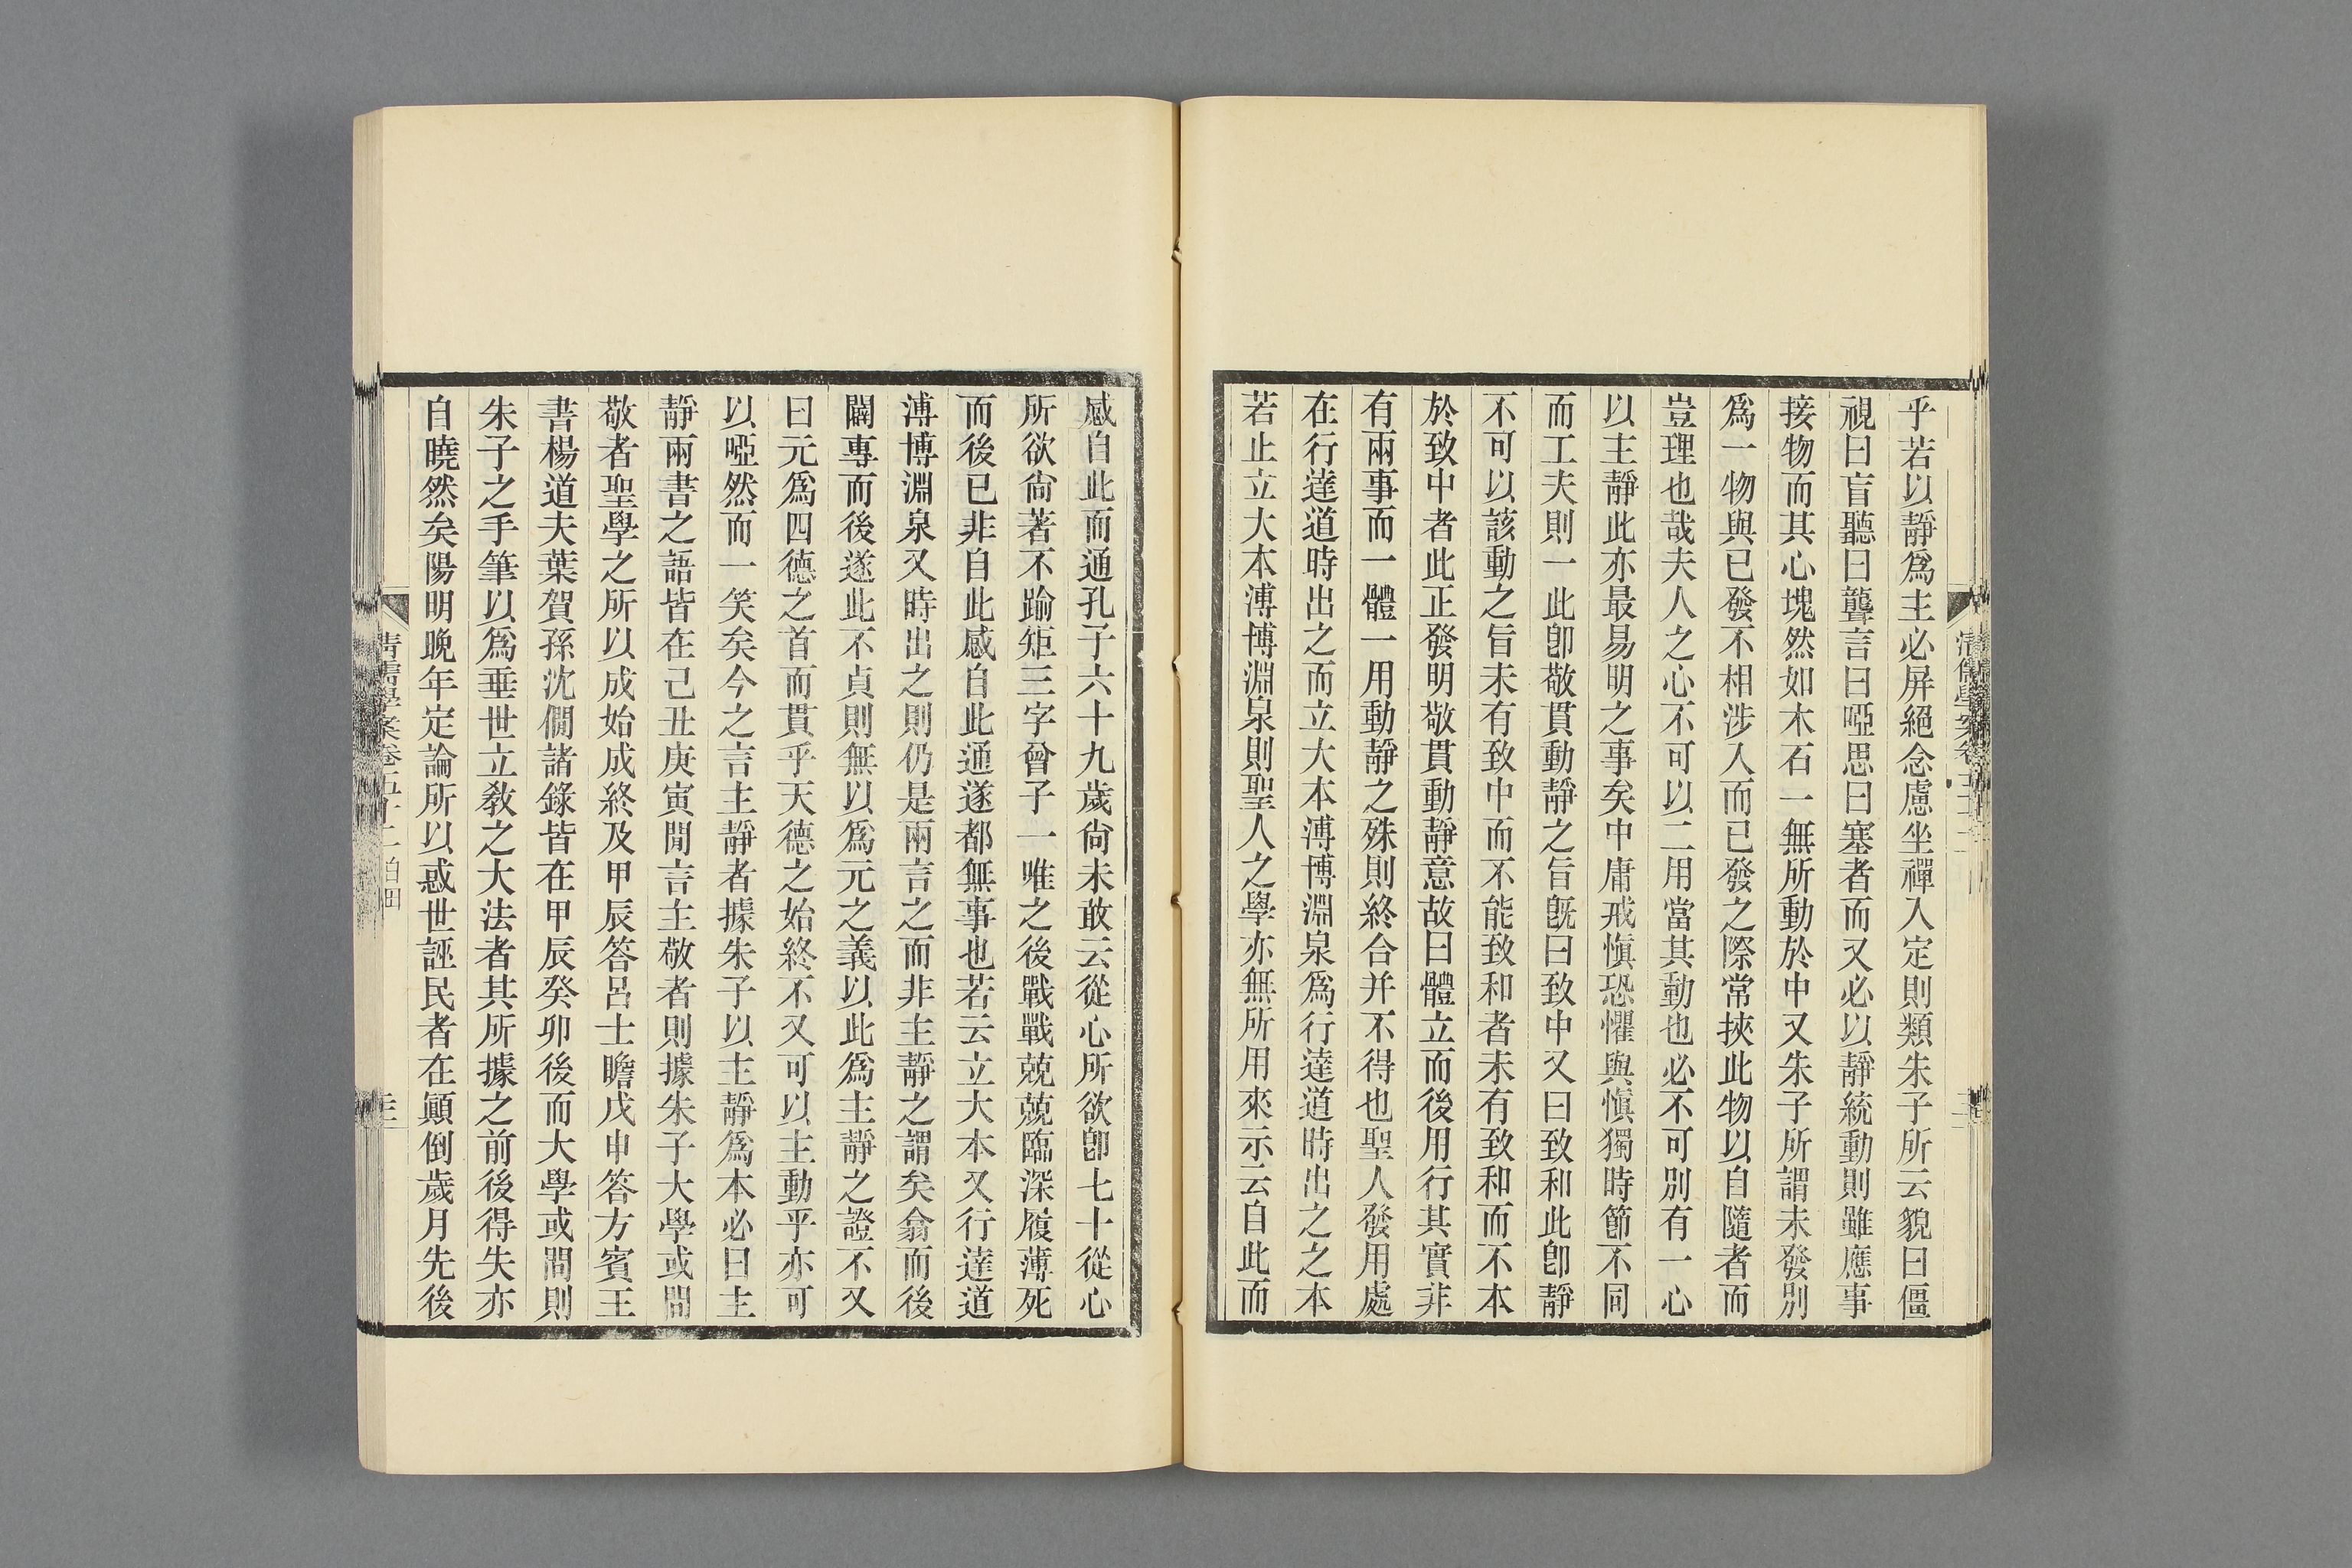 乎若以靜爲主必屏絕念慮坐禪入定則類朱子所云貌曰僵
視曰盲聽曰聾言曰啞思曰塞者而又必以靜統動則雖應事
接物而其心塊然如木石一無所動於中又朱子所謂未發別
爲一物與已發不相涉入而已發之際常挾此物以自隨者而
豈理也哉夫人之心不可以二用當其動也必不可別有一心
以主靜此亦最易明之事矣中庸戒愼恐懼與愼獨時節不同
而工夫則一此卽敬貫動靜之旨旣曰致中又曰致和此卽靜
不可以該動之旨未有致中而不能致和者未有致和而不本
於致中者此正發明敬貫動靜意故曰體立而後用行其實非
有兩事而一體一用動靜之殊則終合并不得也聖人發用處
在行達道時出之而立大本溥博淵泉爲行達道時出之之本
若止立大本溥博淵泉則聖人之學亦無所用來示云自此而
感自此而通孔子六十九歲尙未敢云從心所欲卽七十從心
所欲尙著不踰矩三字曾子一唯之後戰戰兢兢臨深履薄死
而後已非自此感自此通遂都無事也若云立大本又行達道
溥博淵泉又時出之則仍是兩言之而非主靜之謂矣翕而後
闢專而後遂此不貞則無以爲元之義以此爲主靜之證不又
曰元爲四德之首而貫乎天德之始終不又可以主動乎亦可
以啞然而一笑矣今之言主靜者據朱子以主靜爲本必曰主
靜兩書之語皆在己丑庚寅閒言主敬者則據朱子大學或問
敬者聖學之所以成始成終及甲辰答呂士瞻戊申答方賓王
書楊道夫葉賀孫沈僩諸錄皆在甲辰癸卯後而大學或問則
朱子之手筆以爲垂世立教之大法者其所據之前後得失亦
自曉然矣陽明晚年定論所以惑世誣民者在顚倒歲月先後
清儒學案卷五十二 白田